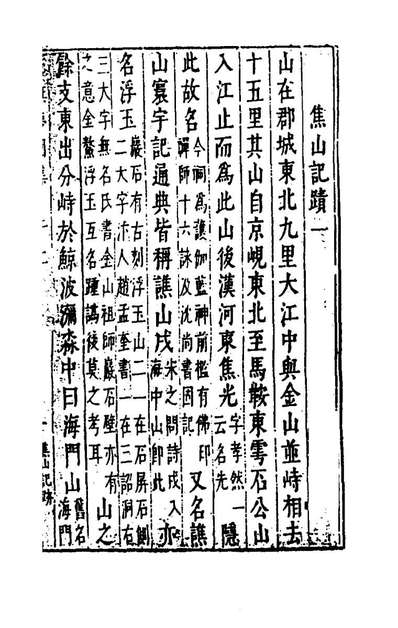 焦山記蹟一
山在郡城東北九里大江中與金山並峙相去
十五里其山自京峴東北至馬鞍東雩石公山
入江止而爲此山後漢河東焦光字孝然一云名先隱
此故名今祠爲護伽藍神前檻有佛印禪師十六詠及沈尚書因記又名譙
山寰宇記通典皆稱譙山戌朱之問詩戌入海中山即此亦
名浮玉巖石有古刻浮玉山二一在石屏石側二大字宋人趙孟奎書一在三詔洞右
三大字無名氏書金山祖師巖石壁亦有之意金鰲浮玉互名踵譌後莫之考耳山之
餘支東出分峙於鯨波瀰淼中曰海門山舊名海門
焦山記蹟